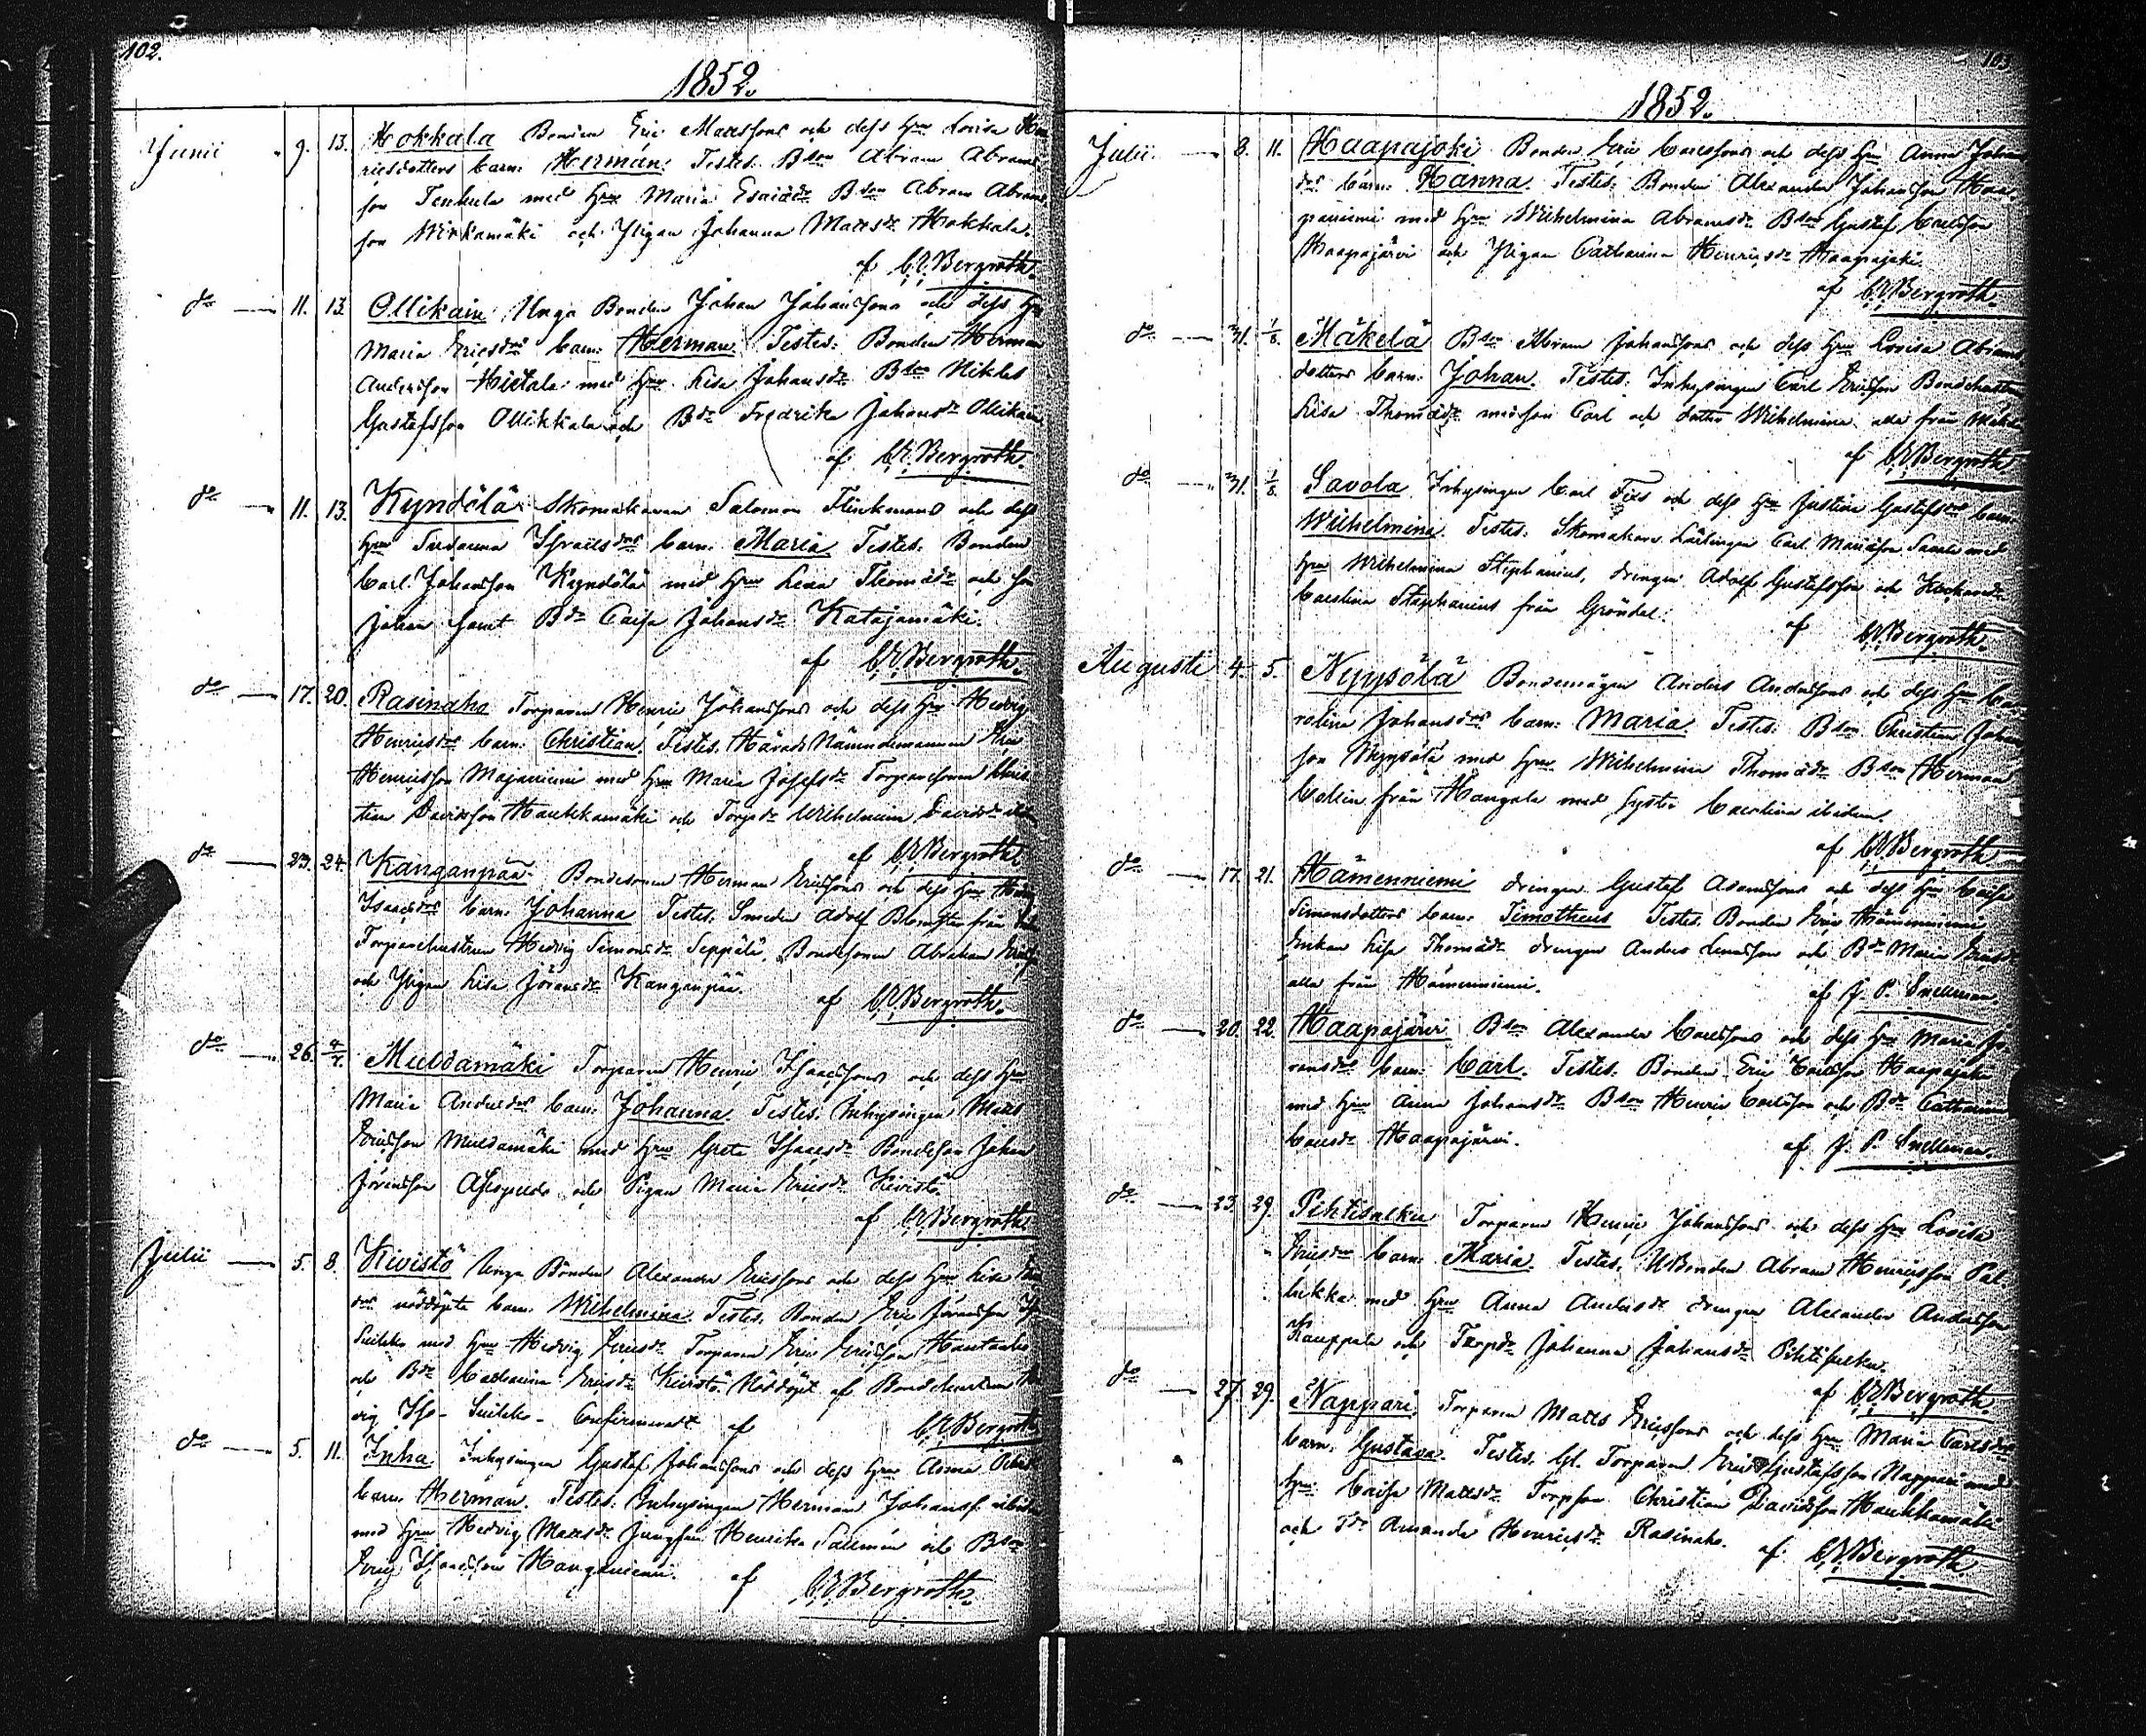 102.
1852.
Junii 9. 13. Hokkala Bonden Eric Mattssons och dess Hru Lovisa Hen
ricsdotters barn: Herman. Testes: Bson Abram Abrams
son Tenhula med Hru Maria Esaiædr Bson Abram Abrams
son Wirkamäki och Pigan Johanna Mattsdr Hokkala.
af C.E. Bergroth.
do 11. 13. Ollikain Unga Bonden Johan Johanssons och dess Hru
Maria Ericsdrs barn: Herman. Testes: Bonden Herman
Andersson Hietala med Hru Lisa Johansdr Bson Niklas
Gustafsson Ollikkala och Bdr Fredrika Johansdr Ollikain
af C.E. Bergroth.
do 11. 13. Kyndölä Skomakaren Salomon Flinkmans och dess
Hru Susanna Israelsdrs barn: Maria Testes: Bonden
Carl Johansson Kyndölä med Hru Lena Thomædr och son
Johan samt Bdr Caisa Johansdr Katajamäki.
af C.E. Bergroth.
do 17. 20. Rasinaho Torparen Henric Johanssons och dess Hru Hedvig
Henricsdrs barn: Christian. Testes. Härads Nämndemannen Eric
Henricsson Majaniemi med Hru Maria Josefsdr Torparesonen Chris
tian Davidsson Haukkamäki och Torpdr Wilhelmina Davidsdr
af C.E. Bergroth.
do 23. 24. Kanganpää Bondesonen Herman Ericssons och dess Hru
Isaacsdrs barn: Johanna Testes. Smeden Adolf från
Torparehustrun Hedvig Simonsdr Seppälä, Bondesonen Abraham
och Pigan Lisa Jöransdr Kanganpää.
af C.E. Bergroth.
do 26. 4/7. Muldamäki Torparen Henric Isaacssons och dess Hru
Maria Andersdrs barn: Johanna. Testes. Inhysingen Matts
Ericsson Muldamäki med Hru Greta Isaacsdr Bondeson Johan
Jöransson och Pigan Maria Ericsdr Kivistö.
af C.E. Bergroth.
Julii 5. 8. Kivistö Unga Bonden Alexander Ericssons och dess Hru Lisa
drs nöddöpte barn: Wilhelmina. Testes. Bonden Eric Jöransson
Suikko med Hru Hedvig Ericsdr Torparen Eric Ericsson Hautaaho
och Bdr Catharina Ericsdr Kivistö. Nöddöpt af Bondehustrun
vig Iso-Suikko. Confirmeradt af C.E. Bergroth
do 5. 11. Inha Inhysingen Gustaf Johanssons och dess Hru Anna
barn: Herman. Testes: Inhysingen Herman Johanss. ibidem
med Hru Hedvig Mattsdr Jungfrun Henrika och Bson
Eric Isaacsson Hanganiemi. af C.E. Bergroth.
103.
1852.
Julii 8. 11. Haapajoki Bonden Eric Carlssons och dess Hru Anna Johans
drs barn: Hanna. Testes: Bonden Alexander Johansson Haa
paniemi med Hru Wilhelmina Abramsdr Bson Gustaf Carlsson
Haapajärvi och Pigan Catharina Henricsdr Haapajoki.
af C.E. Bergroth.
do 31. 1/8. Mäkelä Bson Abram Johanssons och dess Hru Lovisa Abrams
dotters barn: Johan. Testes: Inhysingen Carl Ericsson Bondehustrun
Lisa Thomædr med son Carl och dotter Wilhelmina. alla från Mäkelä
af C.E. Bergroth
do 31. 1/8. Savola Inhysingen Carl och dess Hru Justina Gustafsdrs barn:
Wilhelmina. Testes: Skomakare Lärlingen Carl med
Hru Wilhelmina Stephanius, drengen Adolf Gustafsson och
Carolina Stephanius från Gröndal.
af C.E. Bergroth.
Augusti 4. 5. Nyysölä Bondemågen Anders Anderssons och dess Hru Ca
rolina Johansdrs barn: Maria. Testes: Bson Christian Johans
son Nyysölä med Hru Wilhelmina Thomædr Bson Herman
från Hangala med syster Carolina ibidem.
af C.E. Bergroth
do 17. 21. Hämenniemi drengen Gustaf Adamssons och dess Hru Caisa
Simonsdotters barn: Timotheus Testes. Bonden Eric Hämenniemi
Enkan Lisa Thomædr drengen Anders och Bdr Maria Ericsdr
alla från Hämenniemi. af J. P. Snellman.
do 20. 22. Haapajärvi Bson Alexander Carlssons och dess Hru Maria Jö
ransdrs barn: Carl. Testes. Bonden Eric Carlsson Haapajoki
med Hru Anna Johansdr Bson Henric Carlsson och Bdr Catharina
Carlsdr Haapajärvi. af J. P. Snellman.
do 23. 29. Pihtisalku Torparen Henric Johanssons och dess Hru Lovisa
Ericsdrs barn: Maria. Testes. UBonden Abram Henricsson Pal
lukka med Hru Anna Andersdr drengen Alexander Andersson
Kauppala och Torpdr Johanna Johansdr Pihtisalku.
af C.E. Bergroth.
do 27. 29. Nappari Torparen Matts Ericssons och dess Hru Maria Carlsdrs
barn: Gustava. Testes. Gl. Torparen Eric Gustafsson Nappari med
Hru Caisa Mattsdr Torpson Christian Davidsson Haukkamäki
och Tdr Amanda Henricsdr Rasinaho.
af C.E. Bergroth